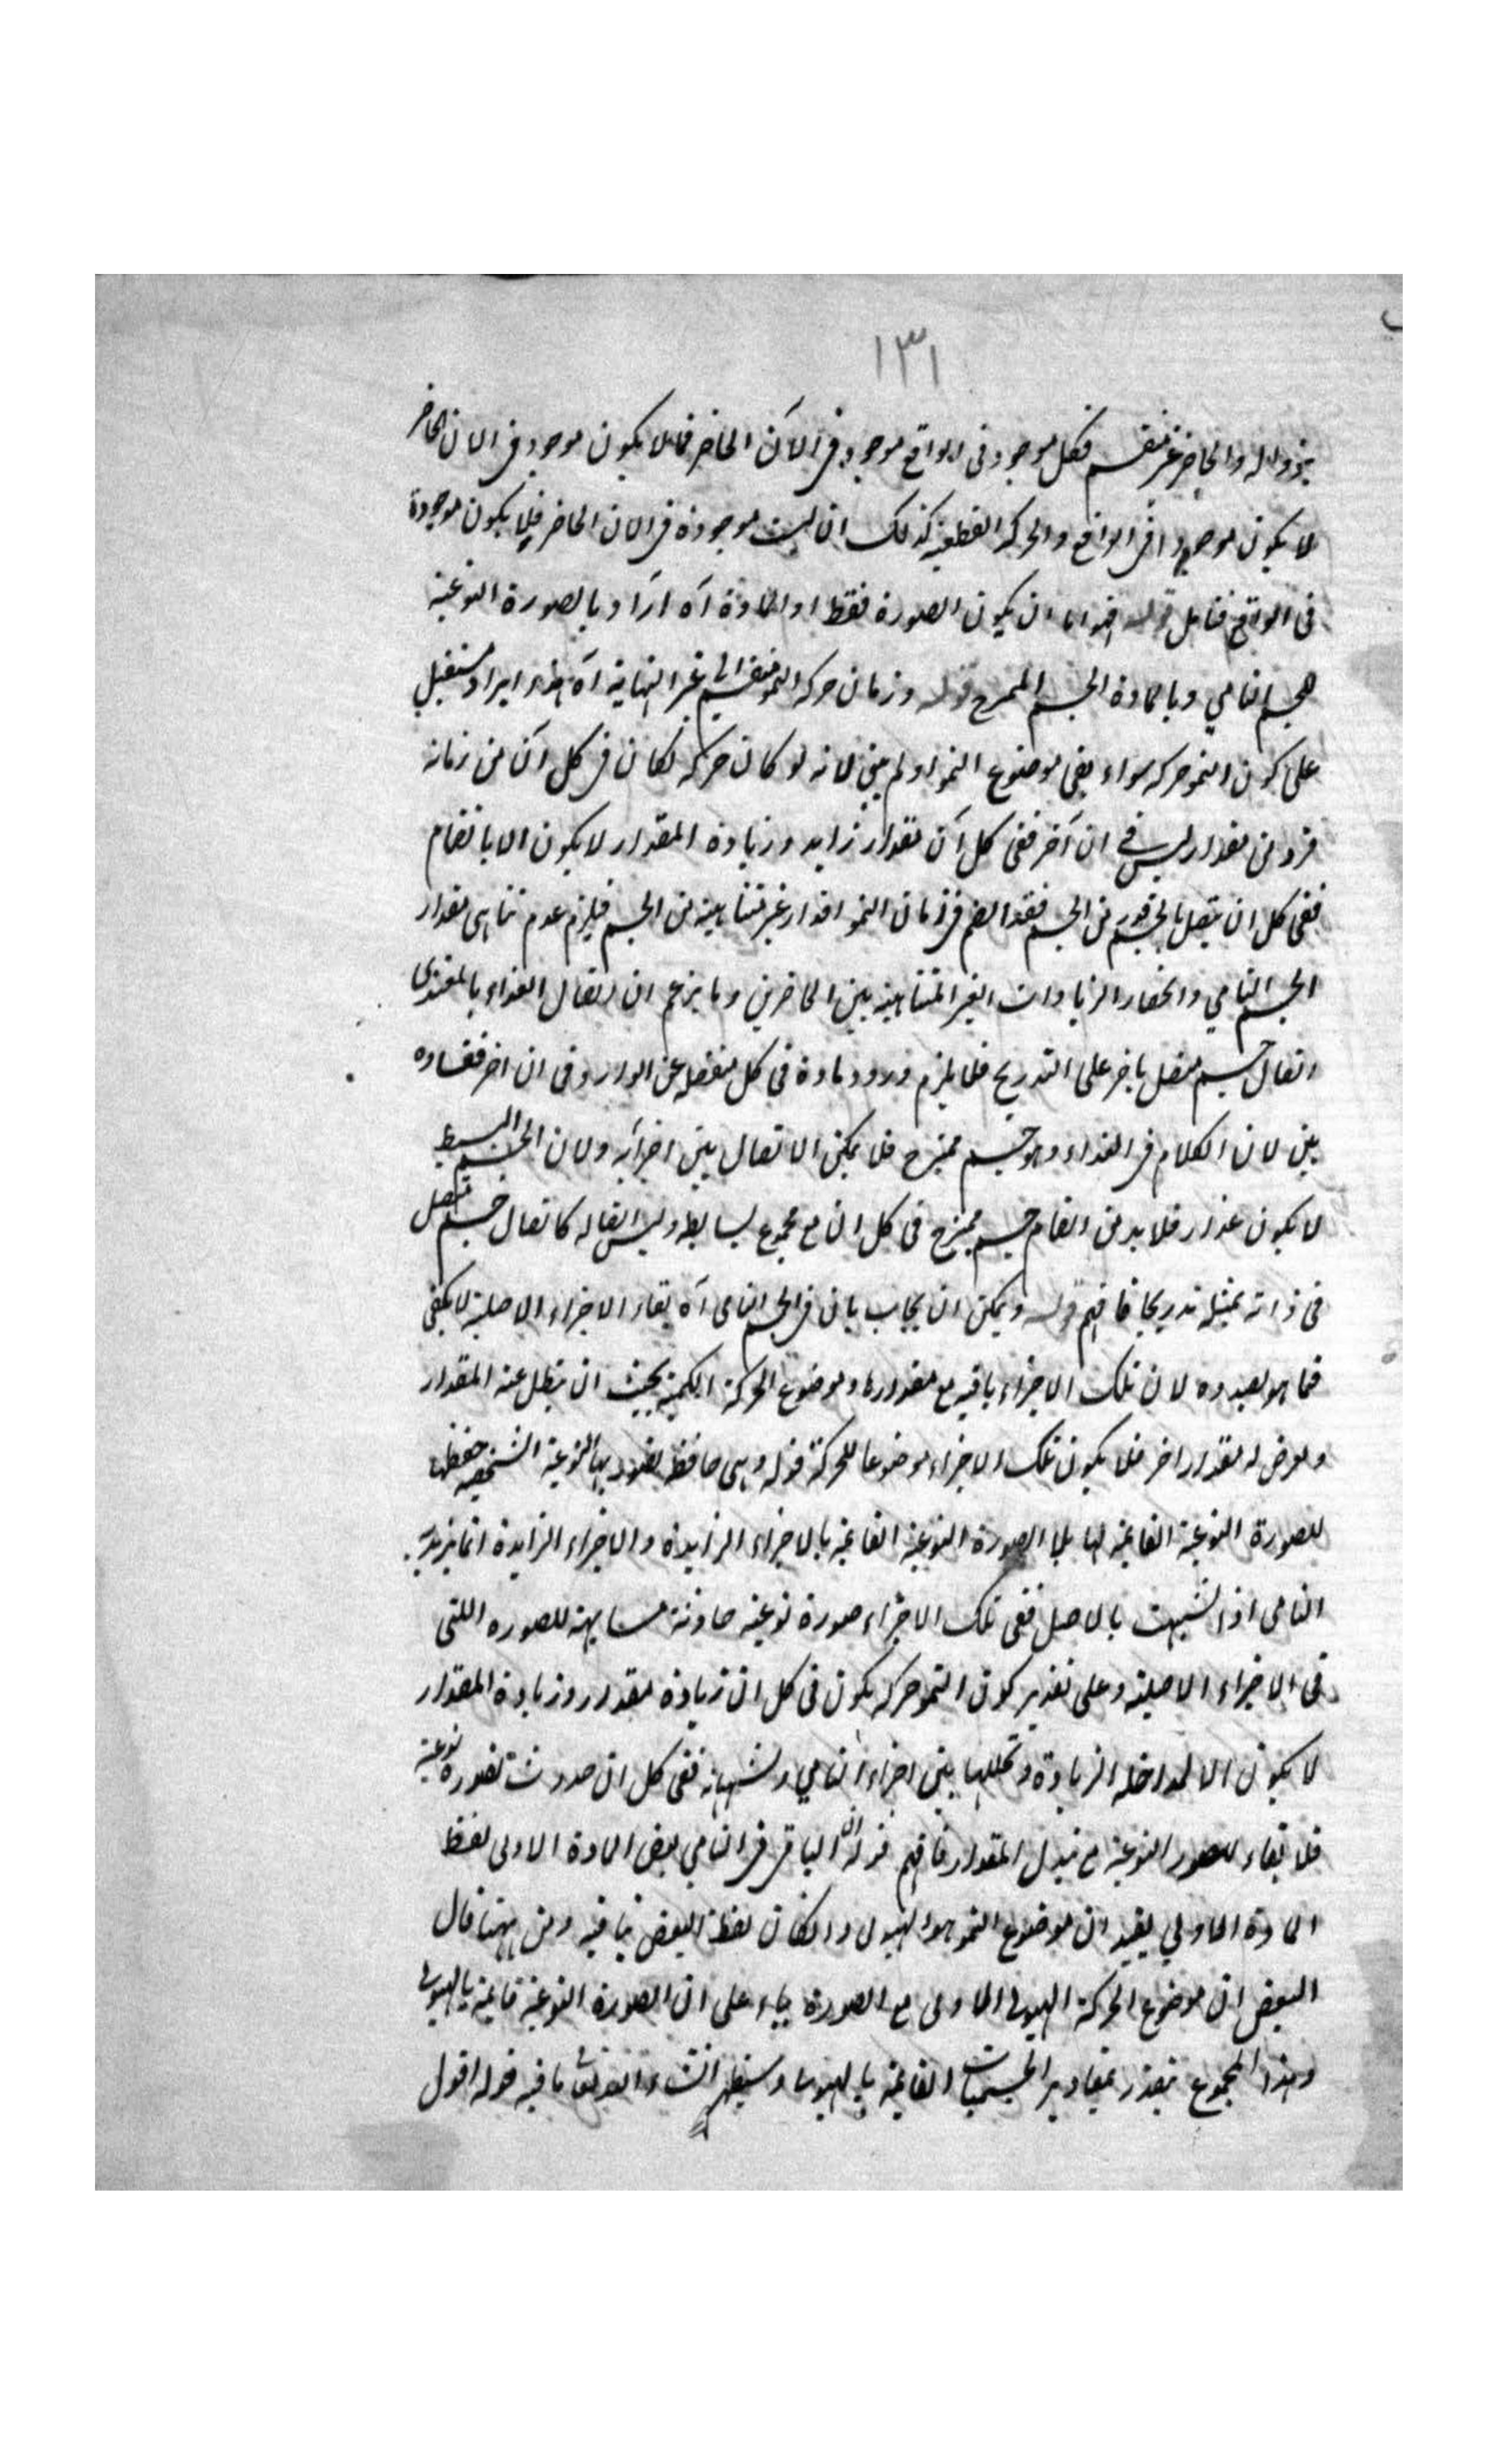 ١٣١
بزواله والحاضر غير منقسم فكل موجود فى الواقع موجود فى الآن الحاضر فما لا يكون موجود فى الان الحاضر
لا يكون موجودا فى الواقع والحركة القطعية كذلك اى ليست موجودة فى الان الحاضر فلا يكون موجودة
فى الواقع فتامل قوله اما ان يكون الصورة فقط او المادة آه اراد بالصورة النوعية
للجسم النامي وبالمادة الجسم الممزج قوله وزمان حركة النمو منقسم الى غير النهاية آه هذا ايراد مستقبل
على كون النمو حركة سواء بقى موضوع النمو اولم يبق لانه لو كان حركة لكان فى كل آن من زمانه
فرد من مقدار ليس فى ان آخر ففى كل آن مقدار زايد وزيادة المقدار لا يكون الا بانضمام
ففى كل ان يتصل بالجسم قدر من الجسم فقد انضم فى زمان النمو اقدار غير متناهية من الجسم فيلزم عدم تناهى مقدار
الجسم النامي وانحصار الزيادات الغير المتناهية بين الحاضرين وما يزعم ان اتصال الغذاء بالمغتذى
اتصال جسم متصل باخر على التدريج فلا يلزم ورود مادة فى كل منفصلة عن الوارد فى ان اخر ففساده
بين لان الكلام فى الغذاء وهو جسم ممتزج فلا يمكن الاتصال بين اجزائه ولان الجسم البسيط
لا يكون غذاء فلا بد من انضمام جسم ممتزج فى كل ان مع مجموع بسايطه وليس اتصاله كاتصال جسم متصل
فى ذاته بمثله تدريجا فافهم قوله ويمكن ان يجاب بان فى الجسم النامى آه بقاء الاجزاء الاصلية لا يكفى
فما هو بصدده لان تلك الاجزاء باقية مع مقدارها وموضوع الحركة الكمية بحيث ان يبطل عنه المقدار
ويعرض له مقدار اخر فلا يكون تلك الاجزاء موضوعا للحركة قوله وهى حافظة لصورتها النوعية الشخصية حفظها
للصورة النوعية القائمة لها بلا الصورة النوعية القائمة بالاجزاء الزايدة والاجزاء الزايدة انما يزيد
النامى اذا تشبهت بالاصل ففى تلك الاجزاء صورة نوعية حادثة مشابهة للصوره اللتى
فى الاجزاء الاصلية وعلى تقدير كون النمو حركة يكون فى كل ان زيادة مقدار وزيادة المقدار
لا يكون الا لمداخلة الزيادة وتخللها بين اجزاء النامي وتشبهها به ففى كل ان حدوث لصورة نوعية
فلا بقاء للصور النوعية مع تبدل المقدار فافهم قوله ان الباقى فى النامي بعض المادة الاولى لفظ
المادة الاولي يفيد ان موضوع النمو هو الهيولى وان كان لفظ البعض ينافيه ومن ههنا قال
البعض ان موضوع الحركة الهيولى الاولى مع الصورة بناء على ان الصورة النوعية قائمة بالهيولى
وهذا المجموع يتقدر بمقادير الجسميات القائمة بالهيولى وسيظهر انشاء الله تعالى ما فيه قوله اقول